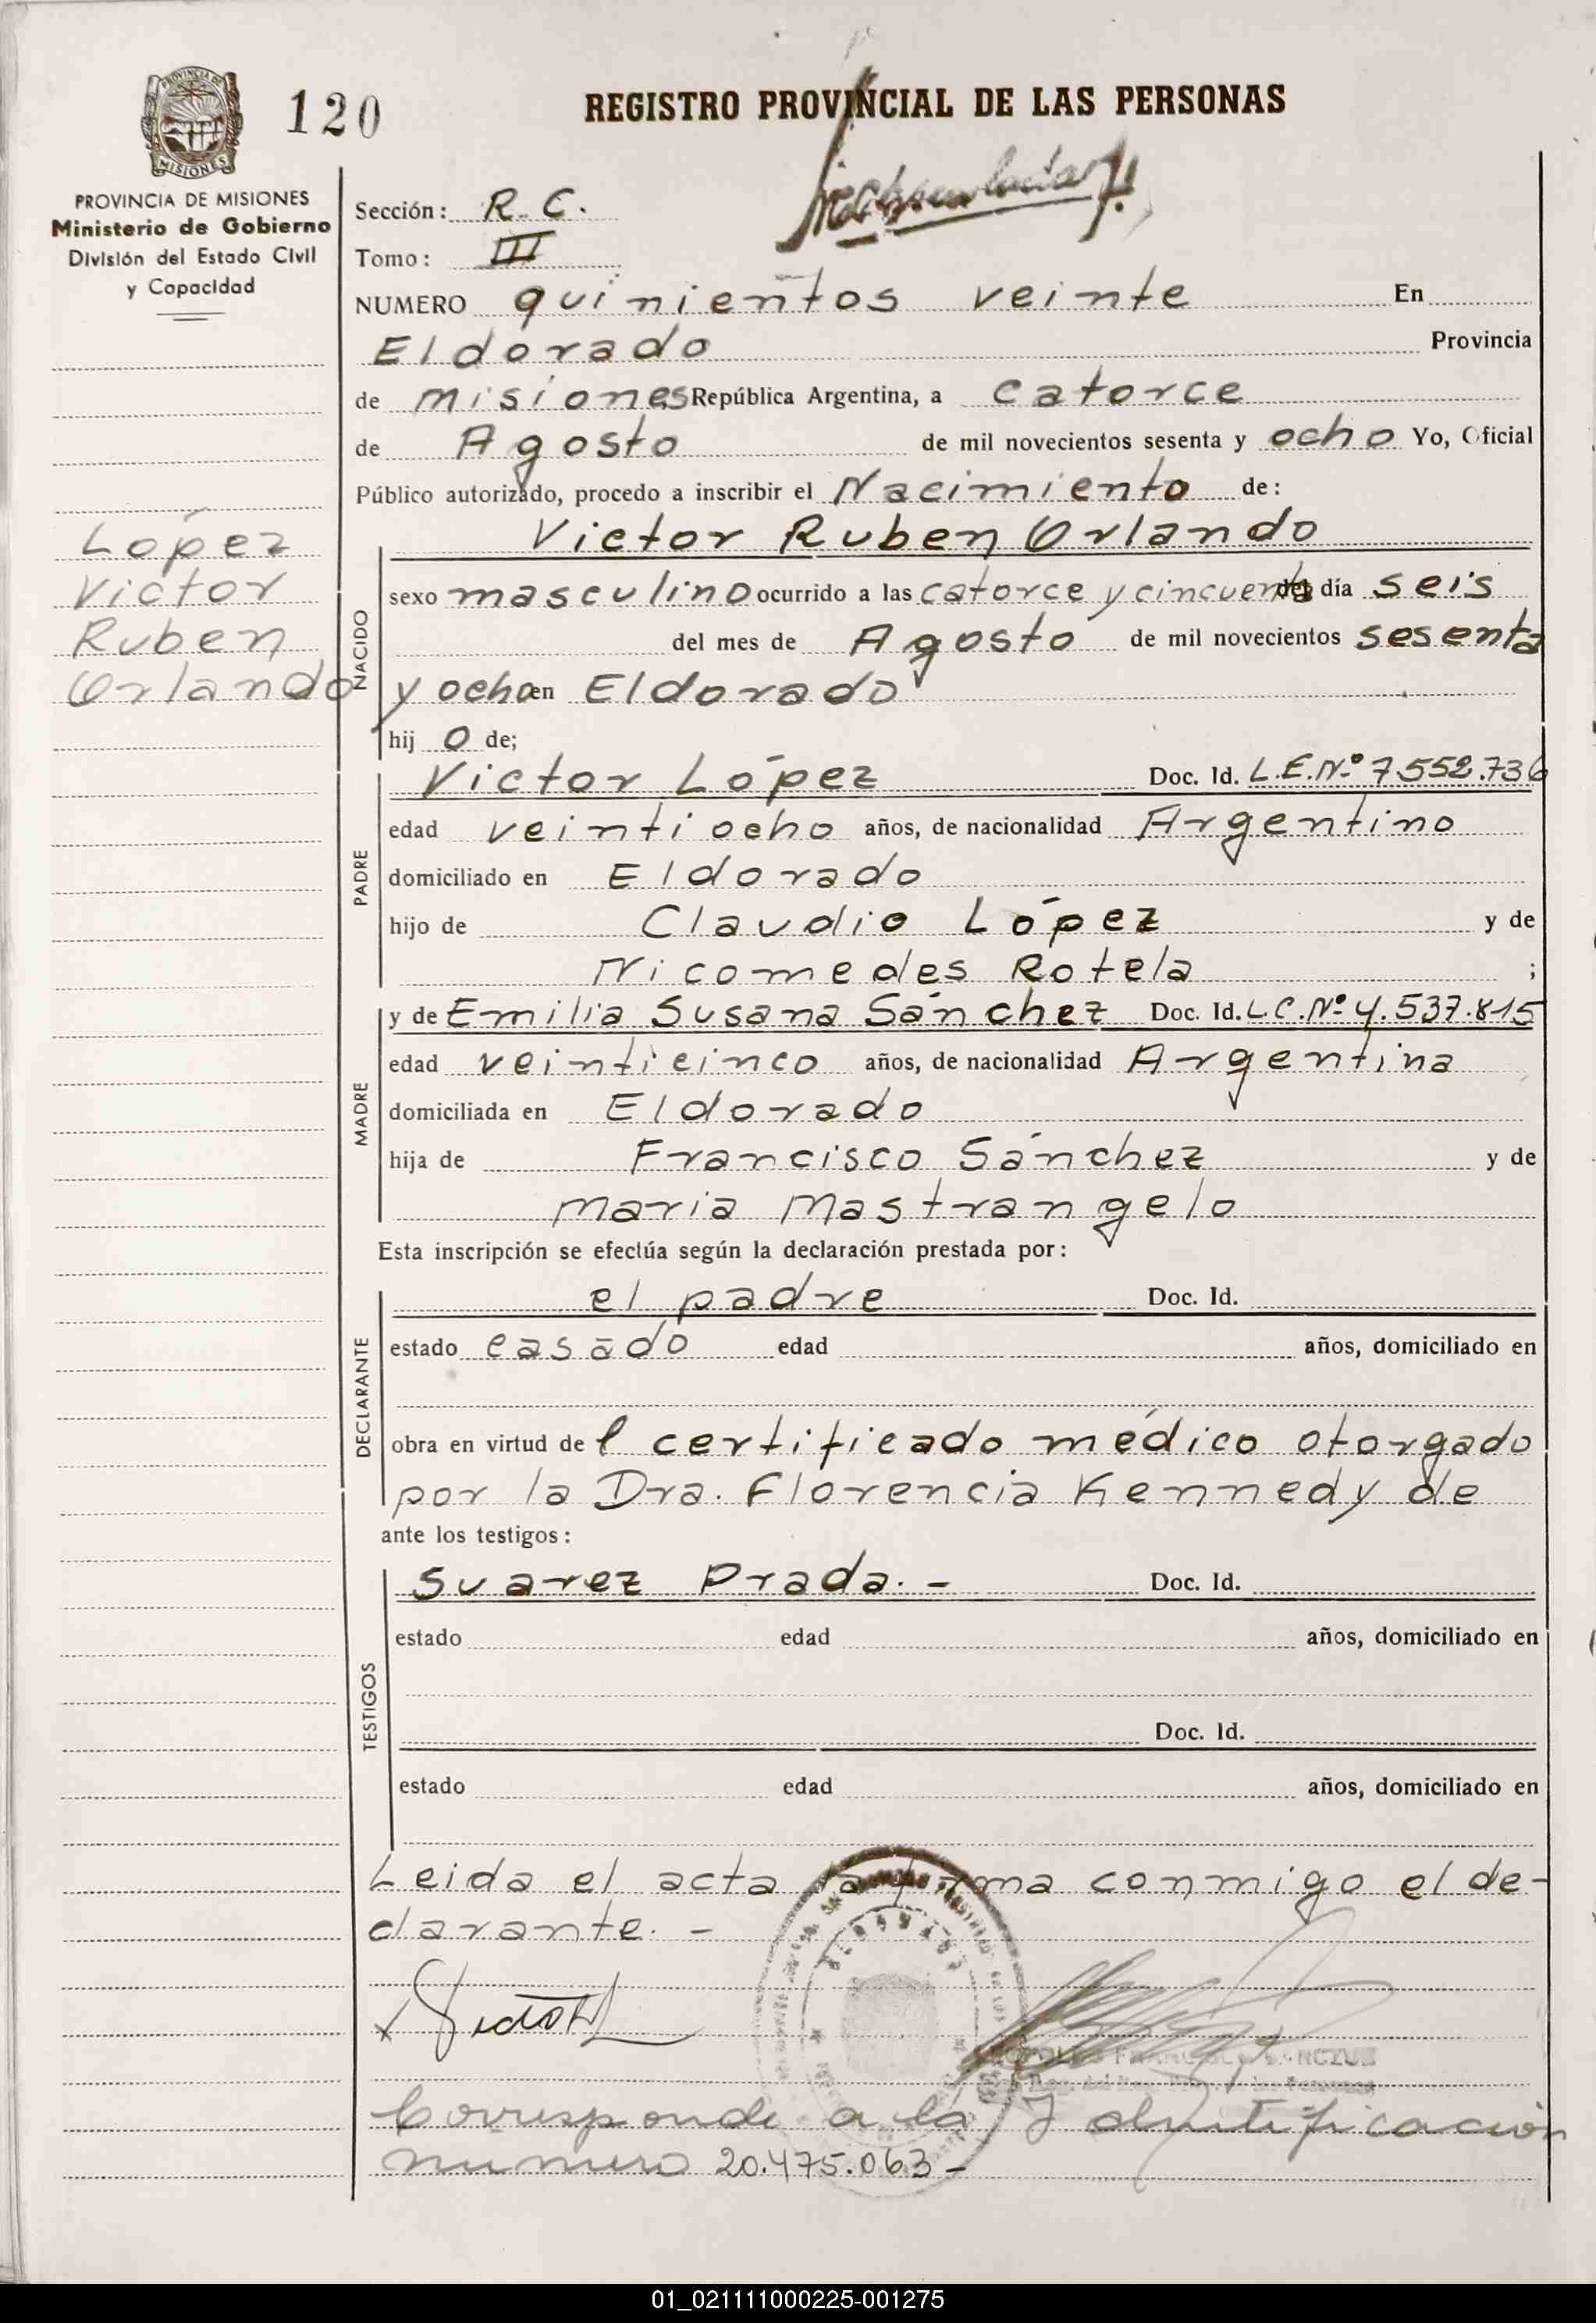 PROVINCIA DE
MISIONES
120
REGISTRO PROVINCIAL DE LAS PERSONAS
PROVINCIA DE MISIONES
Ministerio de Gobierno
División del Estado Civil
y Capacidad
López
Victor
Ruben
Orlando
Sección: R. C.
Tomo: III
NUMERO quinientos veinte En
Eldorado Provincia
de misiones República Argentina, a catorce
de Agosto de mil novecientos sesenta y ocho Yo, Oficial
Público autorizado, procedo a inscribir el Nacimiento de:
Victor Ruben Orlando
NACIDO
sexo masculino ocurrido a las catorce y cincuenta del día seis
del mes de Agosto de mil novecientos sesenta
y ocho en Eldorado
hij o de;
PADRE
Victor López Doc. Id. L.E.Nº 7.552.736
edad veintiocho años, de nacionalidad Argentino
domiciliado en Eldorado
hijo de Claudio López y de
Nicomedes Rotela ;
MADRE
y de Emilia Susana Sánchez Doc. Id. L.C.Nº 4.537.815
edad veinticinco años, de nacionalidad Argentina
domiciliada en Eldorado
hija de Francisco Sánchez y de
maria mastrangelo
Esta inscripción se efectúa según la declaración prestada por:
DECLARANTE
el padre Doc. Id.
estado casado edad años, domiciliado en
obra en virtud de l certificado médico otorgado
por la Dra. Florencia Kennedy de
ante los testigos:
TESTIGOS
Suarez Prada. - Doc. Id.
estado edad años, domiciliado en
Doc. Id.
estado edad años, domiciliado en
Leida el acta la firma conmigo el de-
clarante. -
Corresponde a la Identificación
numero 20.475.063 -
01_021111000225-001275